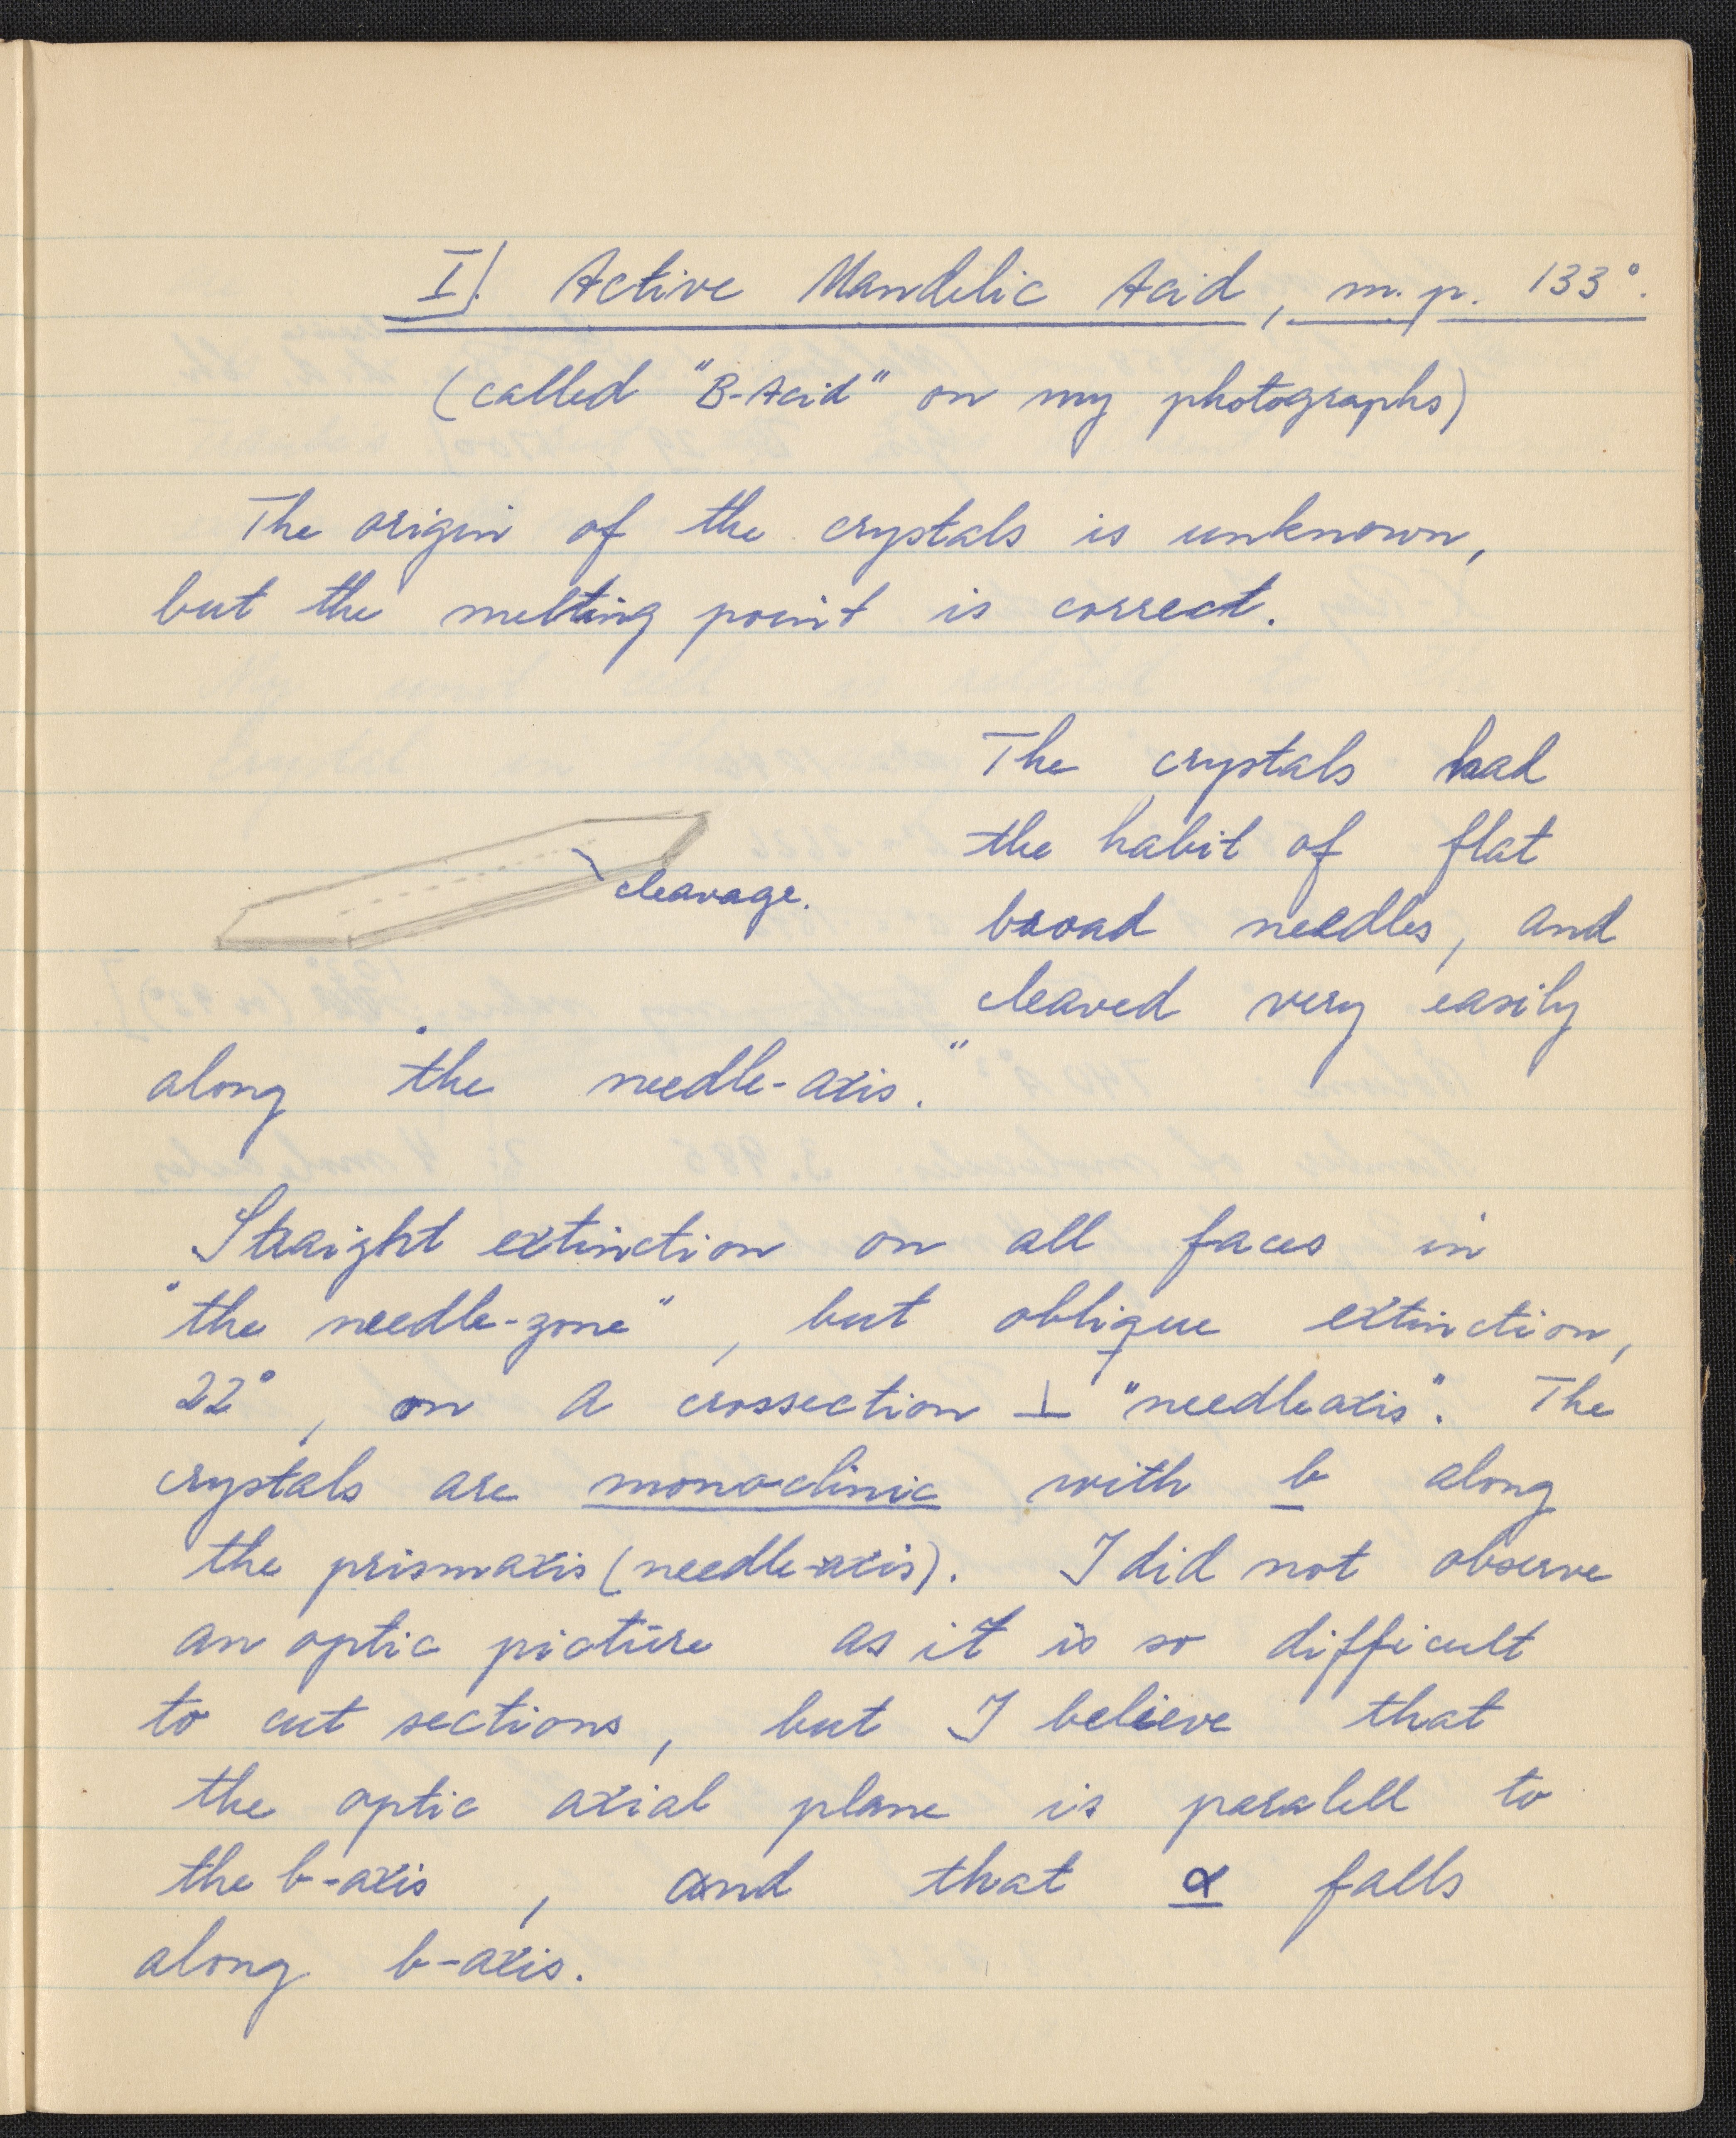 I). Active Mandelic Acid, m.p. 133°.
(called "B-Acid" on my photographs)
The origin of the crystals is unknown,
but the melting point is correct.
The crystals had
the habit of flat
cleavage.
broad needles, and
cleaved very easily
along "the needle-axis."
Straight extinction on all faces in
"the needle-zone", but oblique extinction,
22°, on a crossection ⊥ "needleaxis". The
crystals are monoclinic with b along
the prismaxis (needle-axis). I did not observe
an optic picture as it is so difficult
to cut sections, but I believe that
the optic axial plane is paralell to
the b-axis, and that α falls
along b-axis.